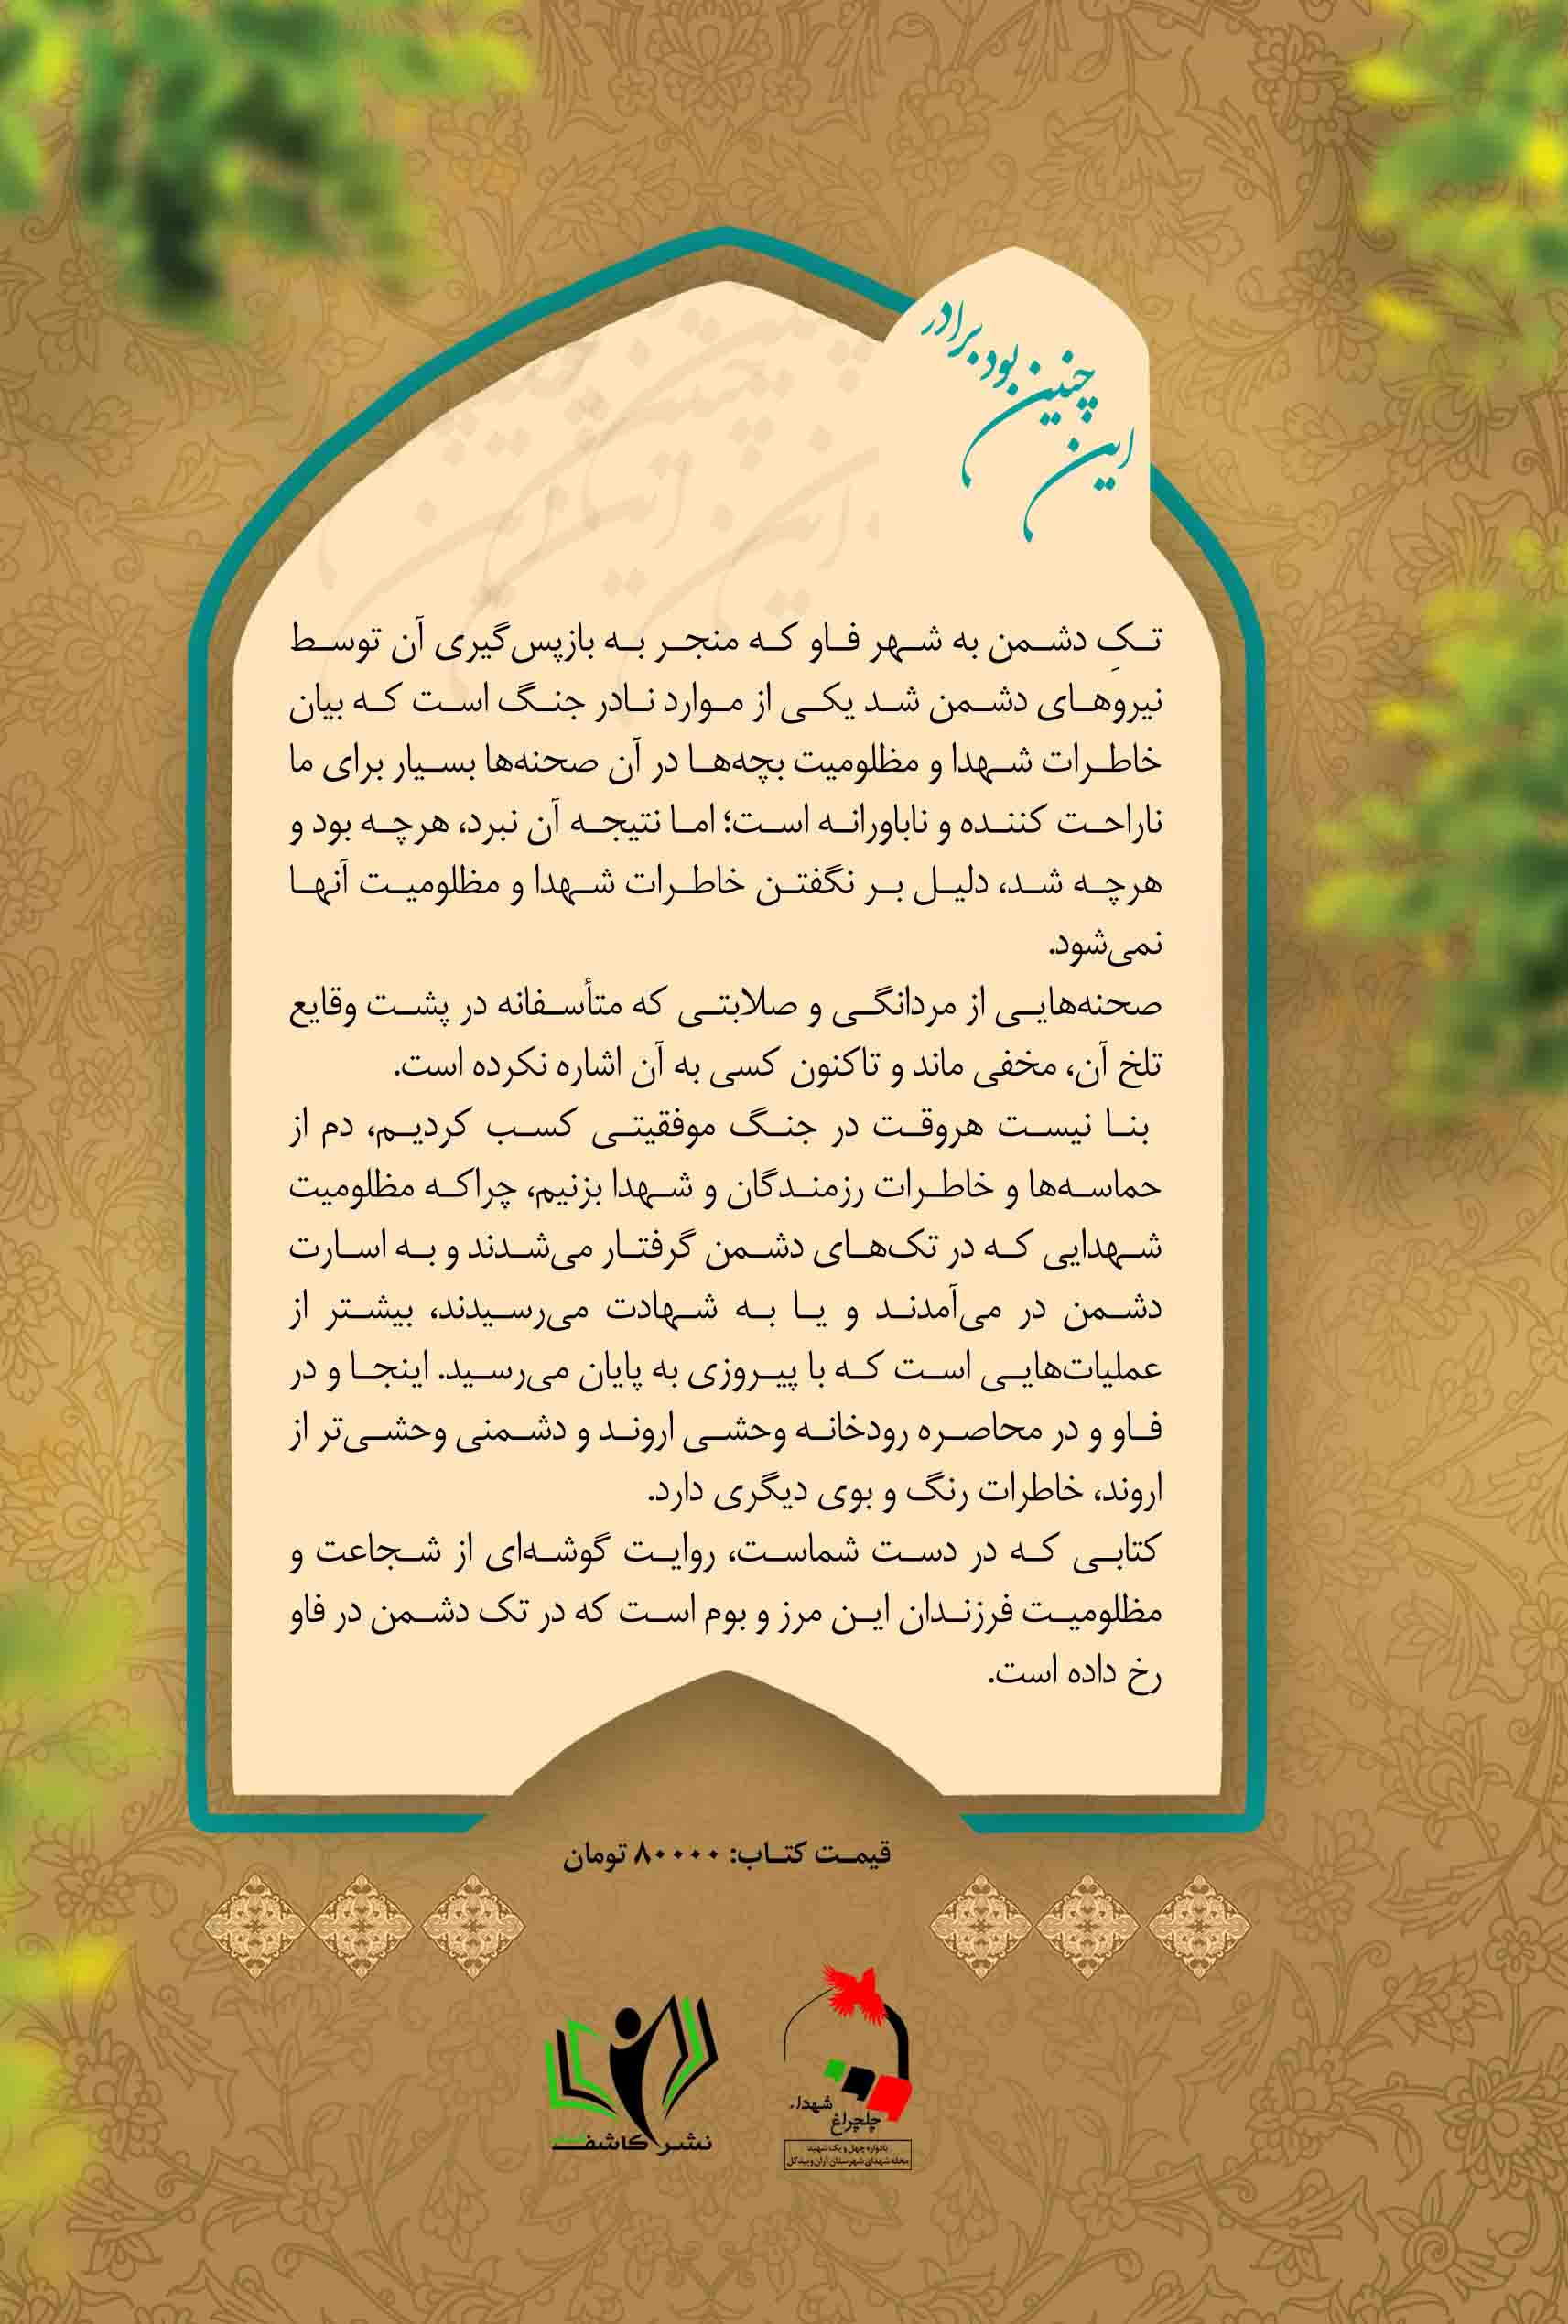 این چنین بود برادر
تکِ دشمن به شهر فاو که منجر به بازپس‌گیری آن توسط
نیروهای دشمن شد یکی از موارد نادر جنگ است که بیان
خاطرات شهدا و مظلومیت بچه‌ها در آن صحنه‌ها بسیار برای ما
ناراحت کننده و ناباورانه است؛ اما نتیجه آن نبرد، هرچه بود و
هرچه شد، دلیل بر نگفتن خاطرات شهدا و مظلومیت آنها
نمی‌شود.
صحنه‌هایی از مردانگی و صلابتی که متأسفانه در پشت وقایع
تلخ آن، مخفی ماند و تاکنون کسی به آن اشاره نکرده است.
بنا نیست هروقت در جنگ موفقیتی کسب کردیم، دم از
حماسه‌ها و خاطرات رزمندگان و شهدا بزنیم، چراکه مظلومیت
شهدایی که در تک‌های دشمن گرفتار می‌شدند و به اسارت
دشمن در می‌آمدند و یا به شهادت می‌رسیدند، بیشتر از
عملیات‌هایی است که با پیروزی به پایان می‌رسید. اینجا و در
فاو و در محاصره رودخانه وحشی اروند و دشمنی وحشی‌تر از
اروند، خاطرات رنگ و بوی دیگری دارد.
کتابی که در دست شماست، روایت گوشه‌ای از شجاعت و
مظلومیت فرزندان این مرز و بوم است که در تک دشمن در فاو
رخ داده است.
قیمت کتاب: ۸۰۰۰۰ تومان
چلچراغ شهداء
یادواره چهل و یک شهید
محله شهدای شهرستان آران و بیدگل
نشر کاشف